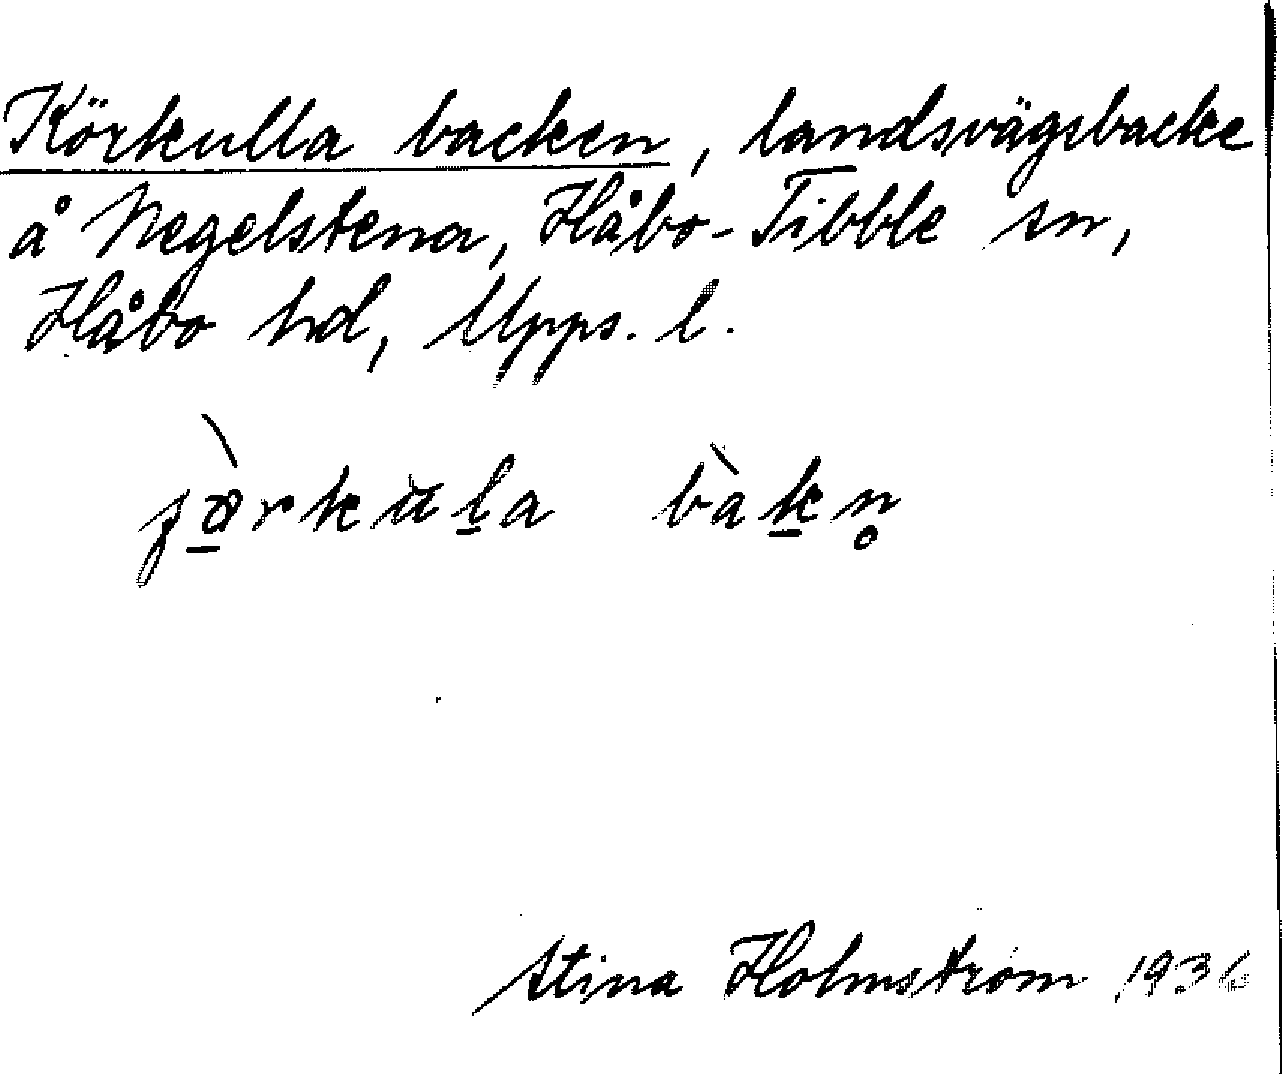 Körkulla backen, landsvägsbacke
å Negelstena, Håbo-Tibble sn,
Håbo hd, Upps. l.
bàk̲n̥
Stina Holmström 1936